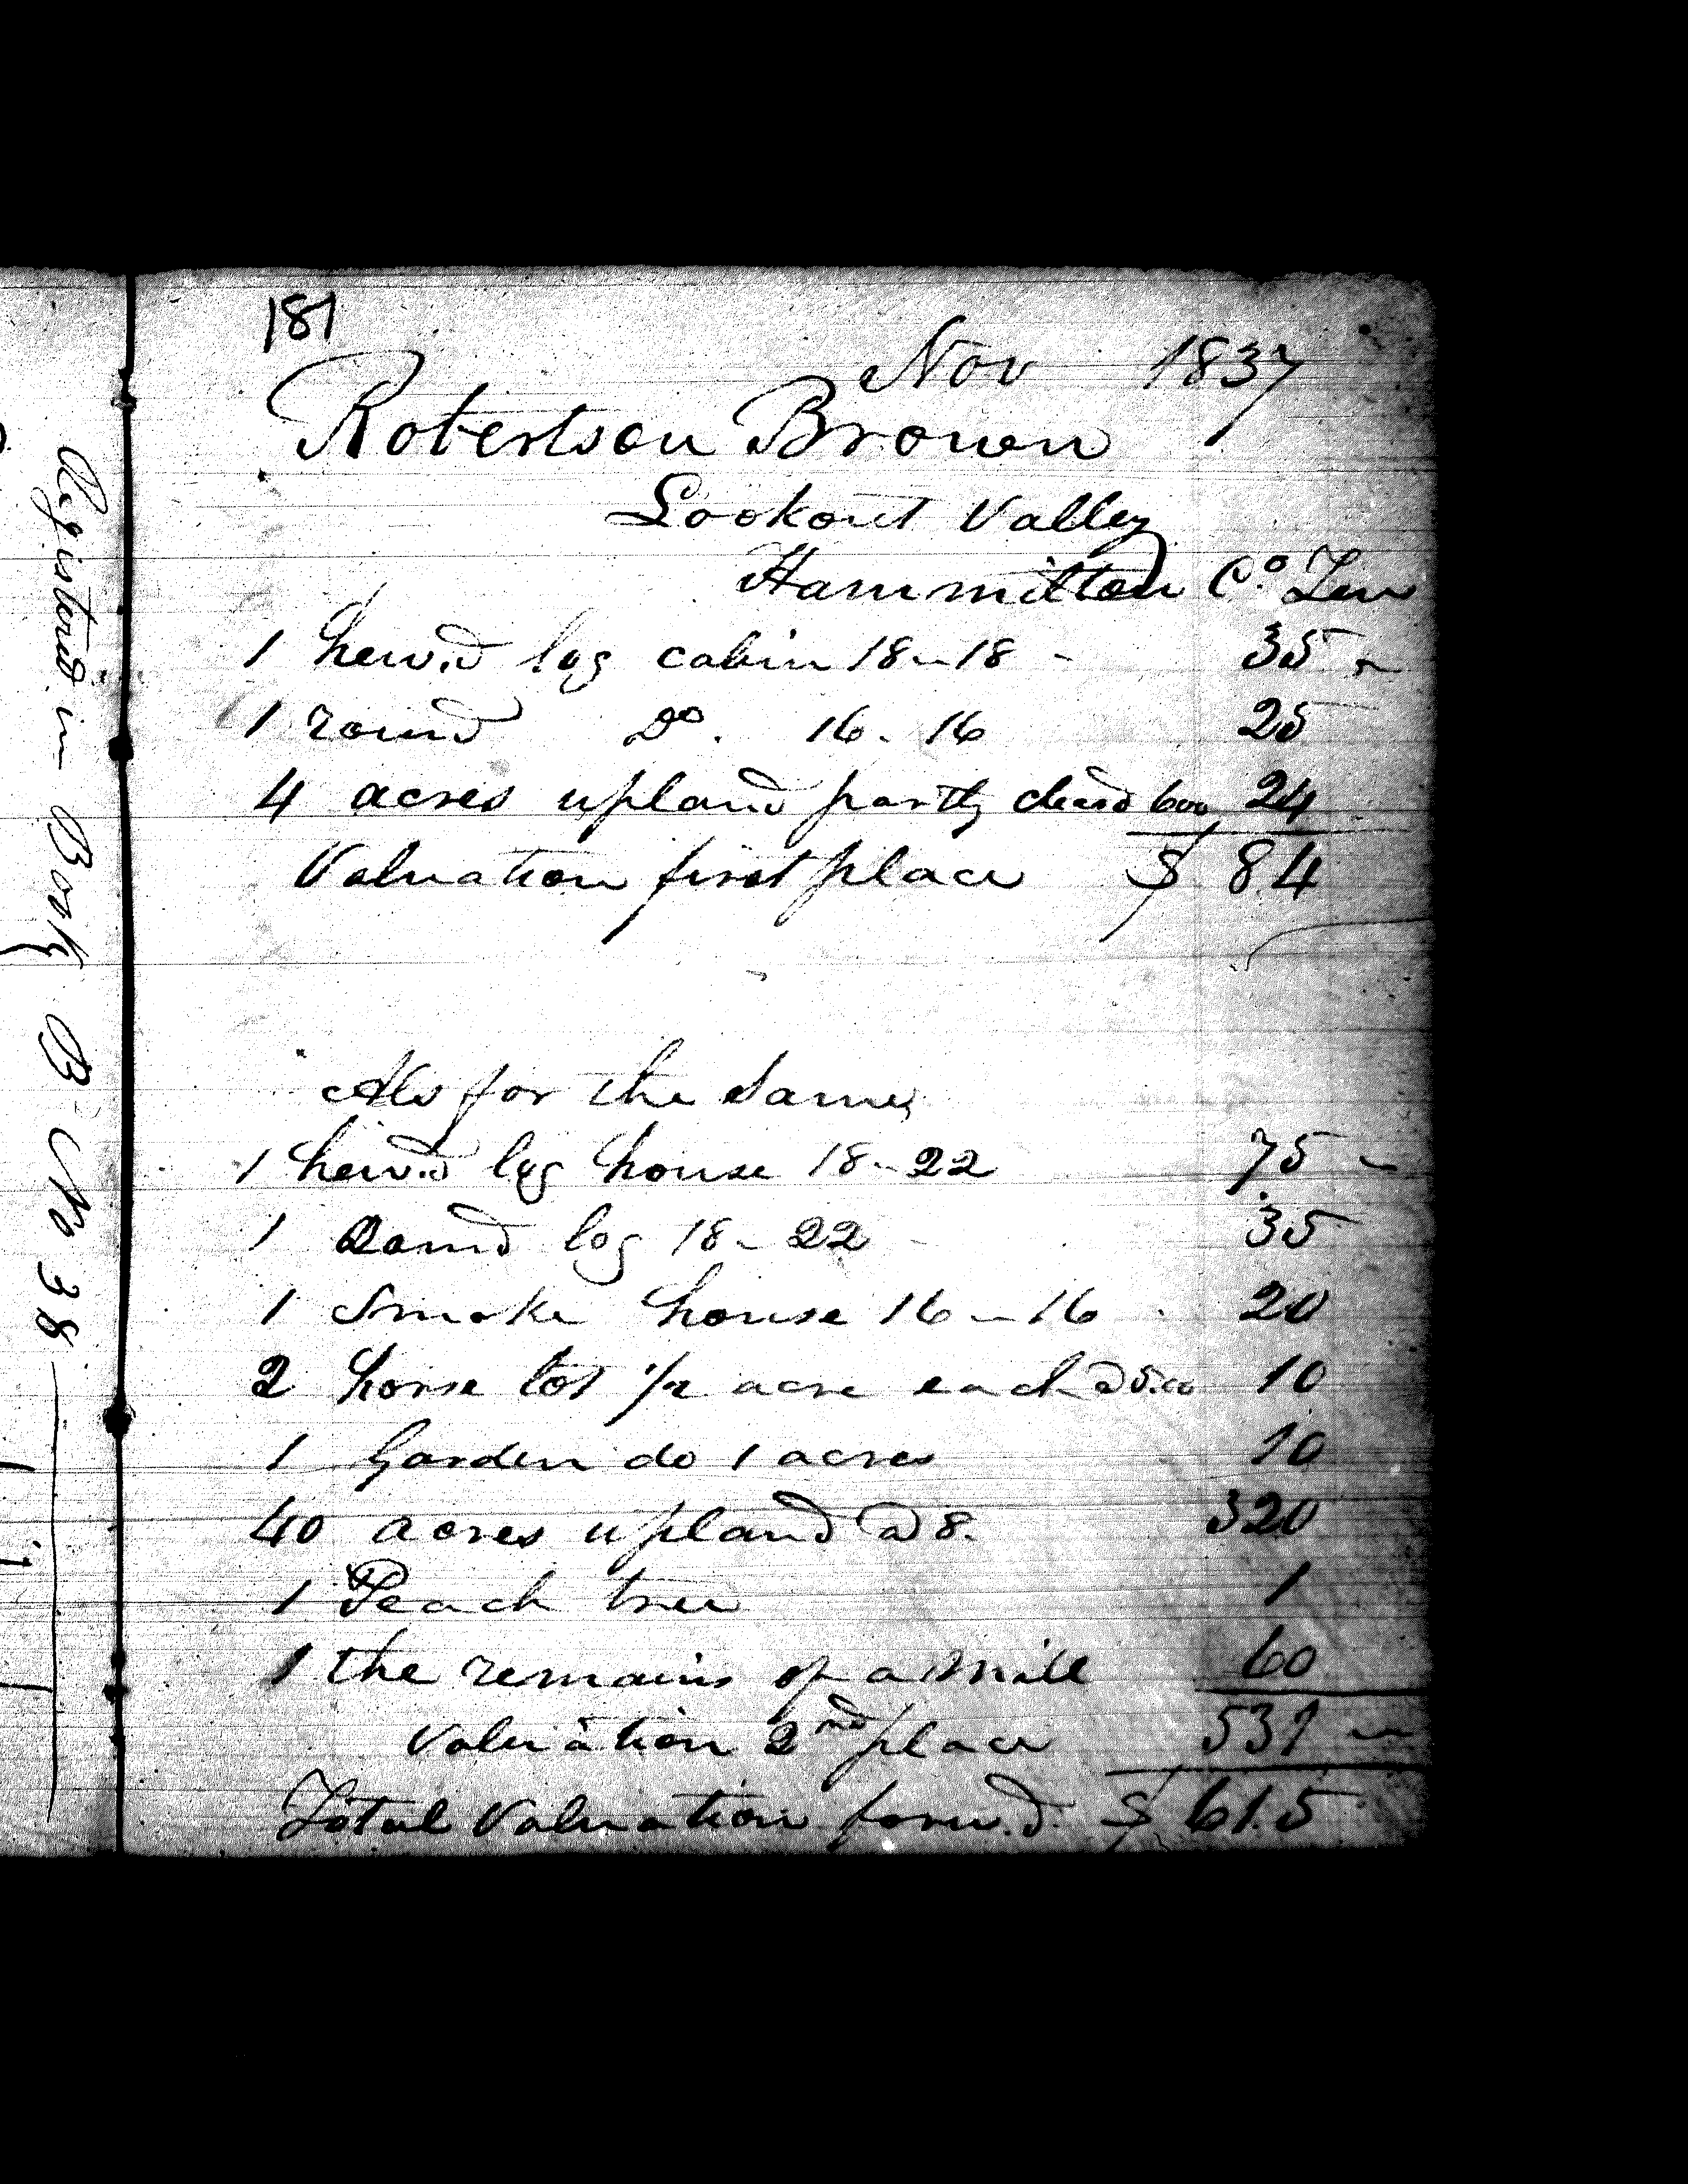 181
Nov 1837
Robertson Brown
Lookout Valley
Hammilton Co. Ten
1 hew.d log cabin 18-18 - 35 -
1 round Do. 16-16 25
4 acres upland partly cleard 600 24
Valuation first place $ 84
Als for the Same
1 hew.d log house 18-22 75 -
1 Round log 18-22 - 35
1 Smoke house 16-16 20
2 horse lot 1/2 acre each @ 5.00 10
1 Garden do 1 acres 10
40 acres upland @ 8. 320
1 Peach tree 1
1 the remains of a mill 60
Valuation 2nd place 531 -
Total Valuation forw.d. $ 615
Registered in Book B No 38